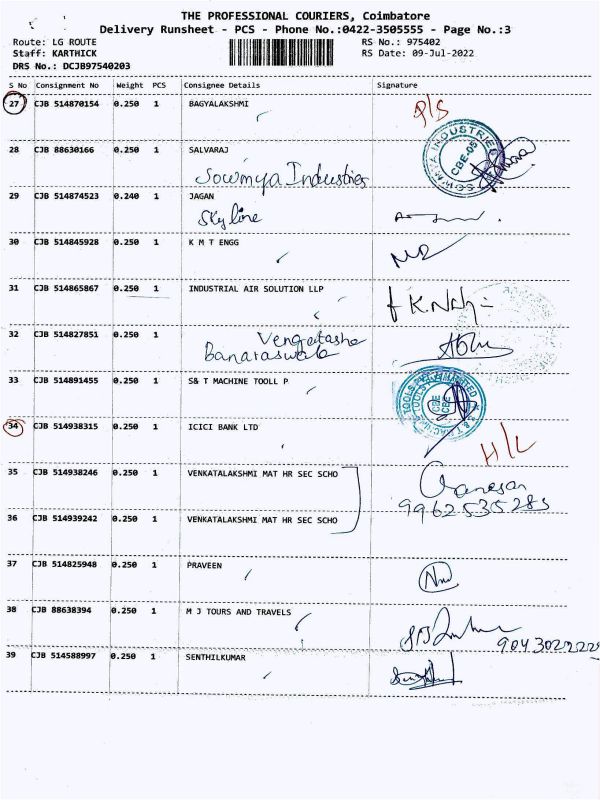 THE PROFESSIONAL COURIERS, Coimbatore
Delivery Runsheet - PCS - Phone No.:0422-3505555 - Page No.:3
Route: LG ROUTE RS No.: 975402
Staff: KARTHICK RS Date: 09-Jul-2022
DRS No.: DCJB97540203
S No Consignment No Weight PCS Consignee Details Signature
27 CJB 514870154 0.250 1 BAGYALAKSHMI P/S
28 CJB 88630166 0.250 1 SALVARAJ
Sowmya Industries
SOWMYA INDUSTRIES CBE-05
29 CJB 514874523 0.240 1 JAGAN
Sky line
30 CJB 514845928 0.250 1 K M T ENGG
31 CJB 514865867 0.250 1 INDUSTRIAL AIR SOLUTION LLP
32 CJB 514827851 0.250 1 Vengatasha
Banaraswala
33 CJB 514891455 0.250 1 S& T MACHINE TOOLL P
34 CJB 514938315 1 ICICI BANK LTD H/L
0.250
35 CJB 514938246 0.250 1 VENKATALAKSHMI MAT HR SEC SCHO Ganesan
9962535285
36 CJB 514939242 0.250 1 VENKATALAKSHMI MAT HR SEC SCHO
37 CJB 514825948 0.250 1 PRAVEEN
38 CJB 88638394 0.250 1 M J TOURS AND TRAVELS
39 CJB 514588997 0.250 1 SENTHILKUMAR